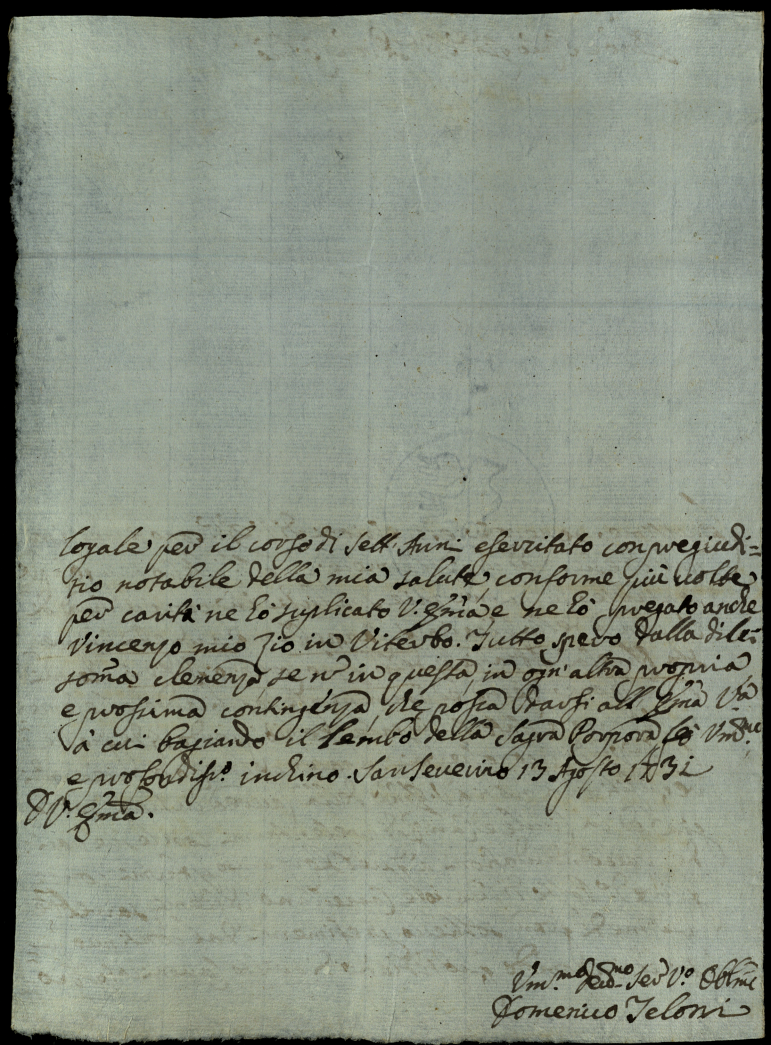 loyale per il corso di sett. Anni esercitato con pregiudi=
tio notabile della mia salute, conforme più volte
per carità ne hò suplicato V. Emza e ne hò pregato anche
Vincenzo mio Zio in Viterbo. Tutto spero dalla di lei
somma clemenza se n in questa in ogn'altra propria
e prossima contingenza, che possa darsi all Emza Va
à cui bagiando il lembo della Sagra Porpora fò Umme
e profondisso inchino. San Severino 13 Agosto 1731
D V. Emza.
Ummo Devmo Serv Vo Obblmo
Domenico Teloni